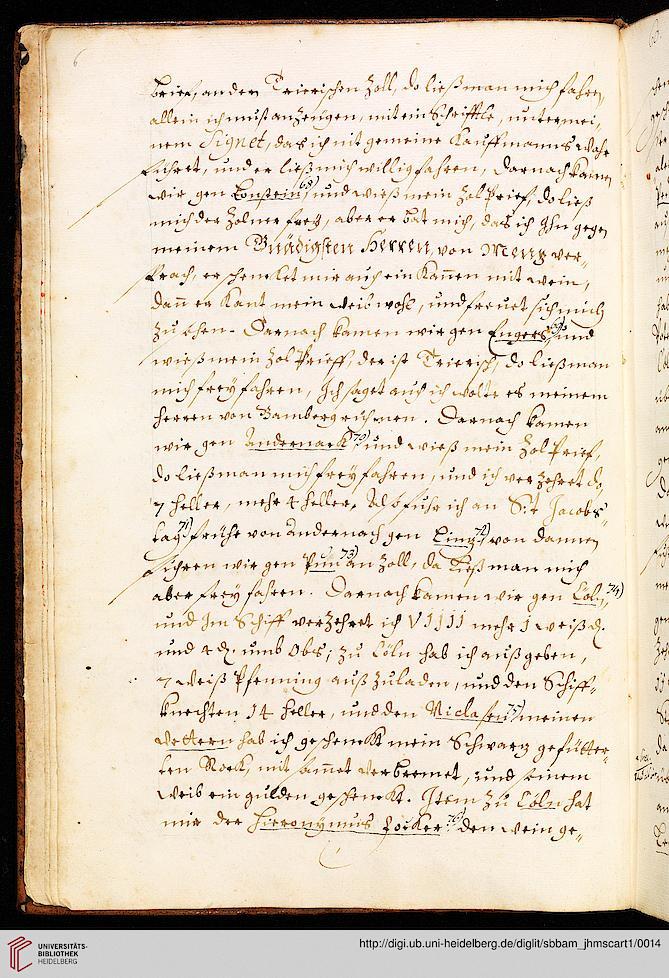 6
brieff, an dem Trierischen Zoll, do ließ man mich fahren,
allein ich must anzeugen, mit ein Schrifftle, unter mei-
nem Signet, das ich nit gemeine Kauffmanns wahr
führet, und er ließ mich willig fahren, darnach kamen
wir gen Lonstein 68) und wieß mein Zol brief, do ließ
mich der Zolner frey, aber er bat mich, das ich Ihn gegen
meinem Gnädigsten Herren, von Menz ver-
sprach, er schencket mir auch ein Kannen mit wein,
dann er kant mein weib wohl, und freuet sich mich
zu sehen. Darnach kamen wir gen Engers 69) und
wieß mein Zol Brieff, der ist Trierisch, do ließ man
mich frey fahren, Ich saget auch ich wolte es meinem
Herren von Bamberg rühmen. Darnach kamen
wir gen Andernach 70) und wieß mein Zol brief,
do ließ man mich frey fahren, und ich verzehret do
7 heller, mehr 4 heller, Also fuhr ich an S:t Jacobs-
tag 71) frühe von Andernach gen Linz 72) von dannen
führen wir gen Pun 73) an Zoll, da ließ man mich
aber frey fahren. Darnach kamen wir gen Cöln, 74)
und Im Schiff verzehret ich VIIII mehr 1 weiß d.
und 4 d. umb Obs; zu Cöln hab ich außgeben,
7 weiß Pfenning auß zuladen, und den Schiff-
knechten 14 heller, und den Niclasen 75) meinen
Vettern hab ich geschenckt mein Schwarz gefütter-
ten Rock, mit samet verbremet, und seinem
Weib ein gulden geschenckt. Item zu Cöln hat
mir der Hieronymus Focker 76) den wein ge-
UNIVERSITÄTS-
BIBLIOTHEK
HEIDELBERG
http://digi.ub.uni-heidelberg.de/diglit/sbbam_jhmscart1/0014